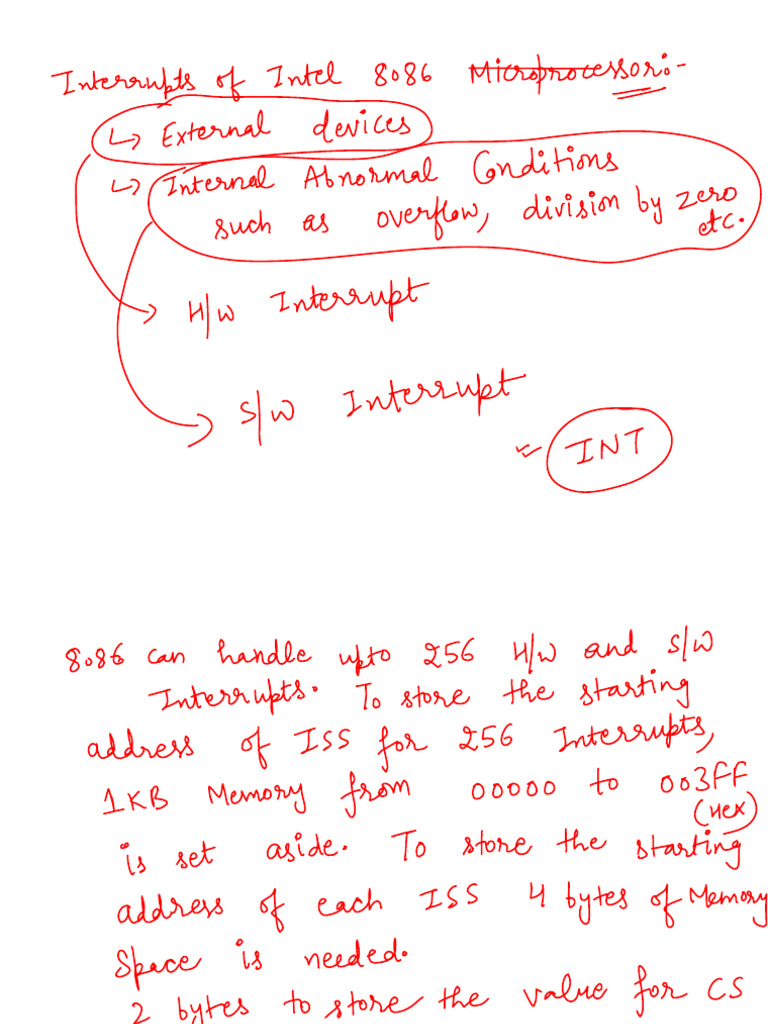 Interrupts of Intel 8086 Microprocessor:-
↳ External devices
↳ Internal Abnormal Conditions
such as overflow, division by zero
etc.
H/W Interrupt
S/W Interrupt
INT
8086 can handle upto 256 H/W and S/W
Interrupts. To store the starting
address of ISS for 256 Interrupts,
1KB Memory from 00000 to 003FF
(Hex)
is set aside. To store the starting
address of each ISS 4 bytes of Memory
Space is needed.
2 bytes to store the value for CS